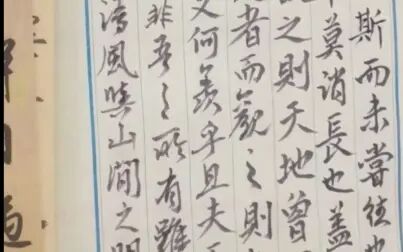 斯而未嘗往也
莫消長也蓋
之則天地曾
者而觀之則
又何羨乎且夫天
非吾之所有雖
清風與山間之明